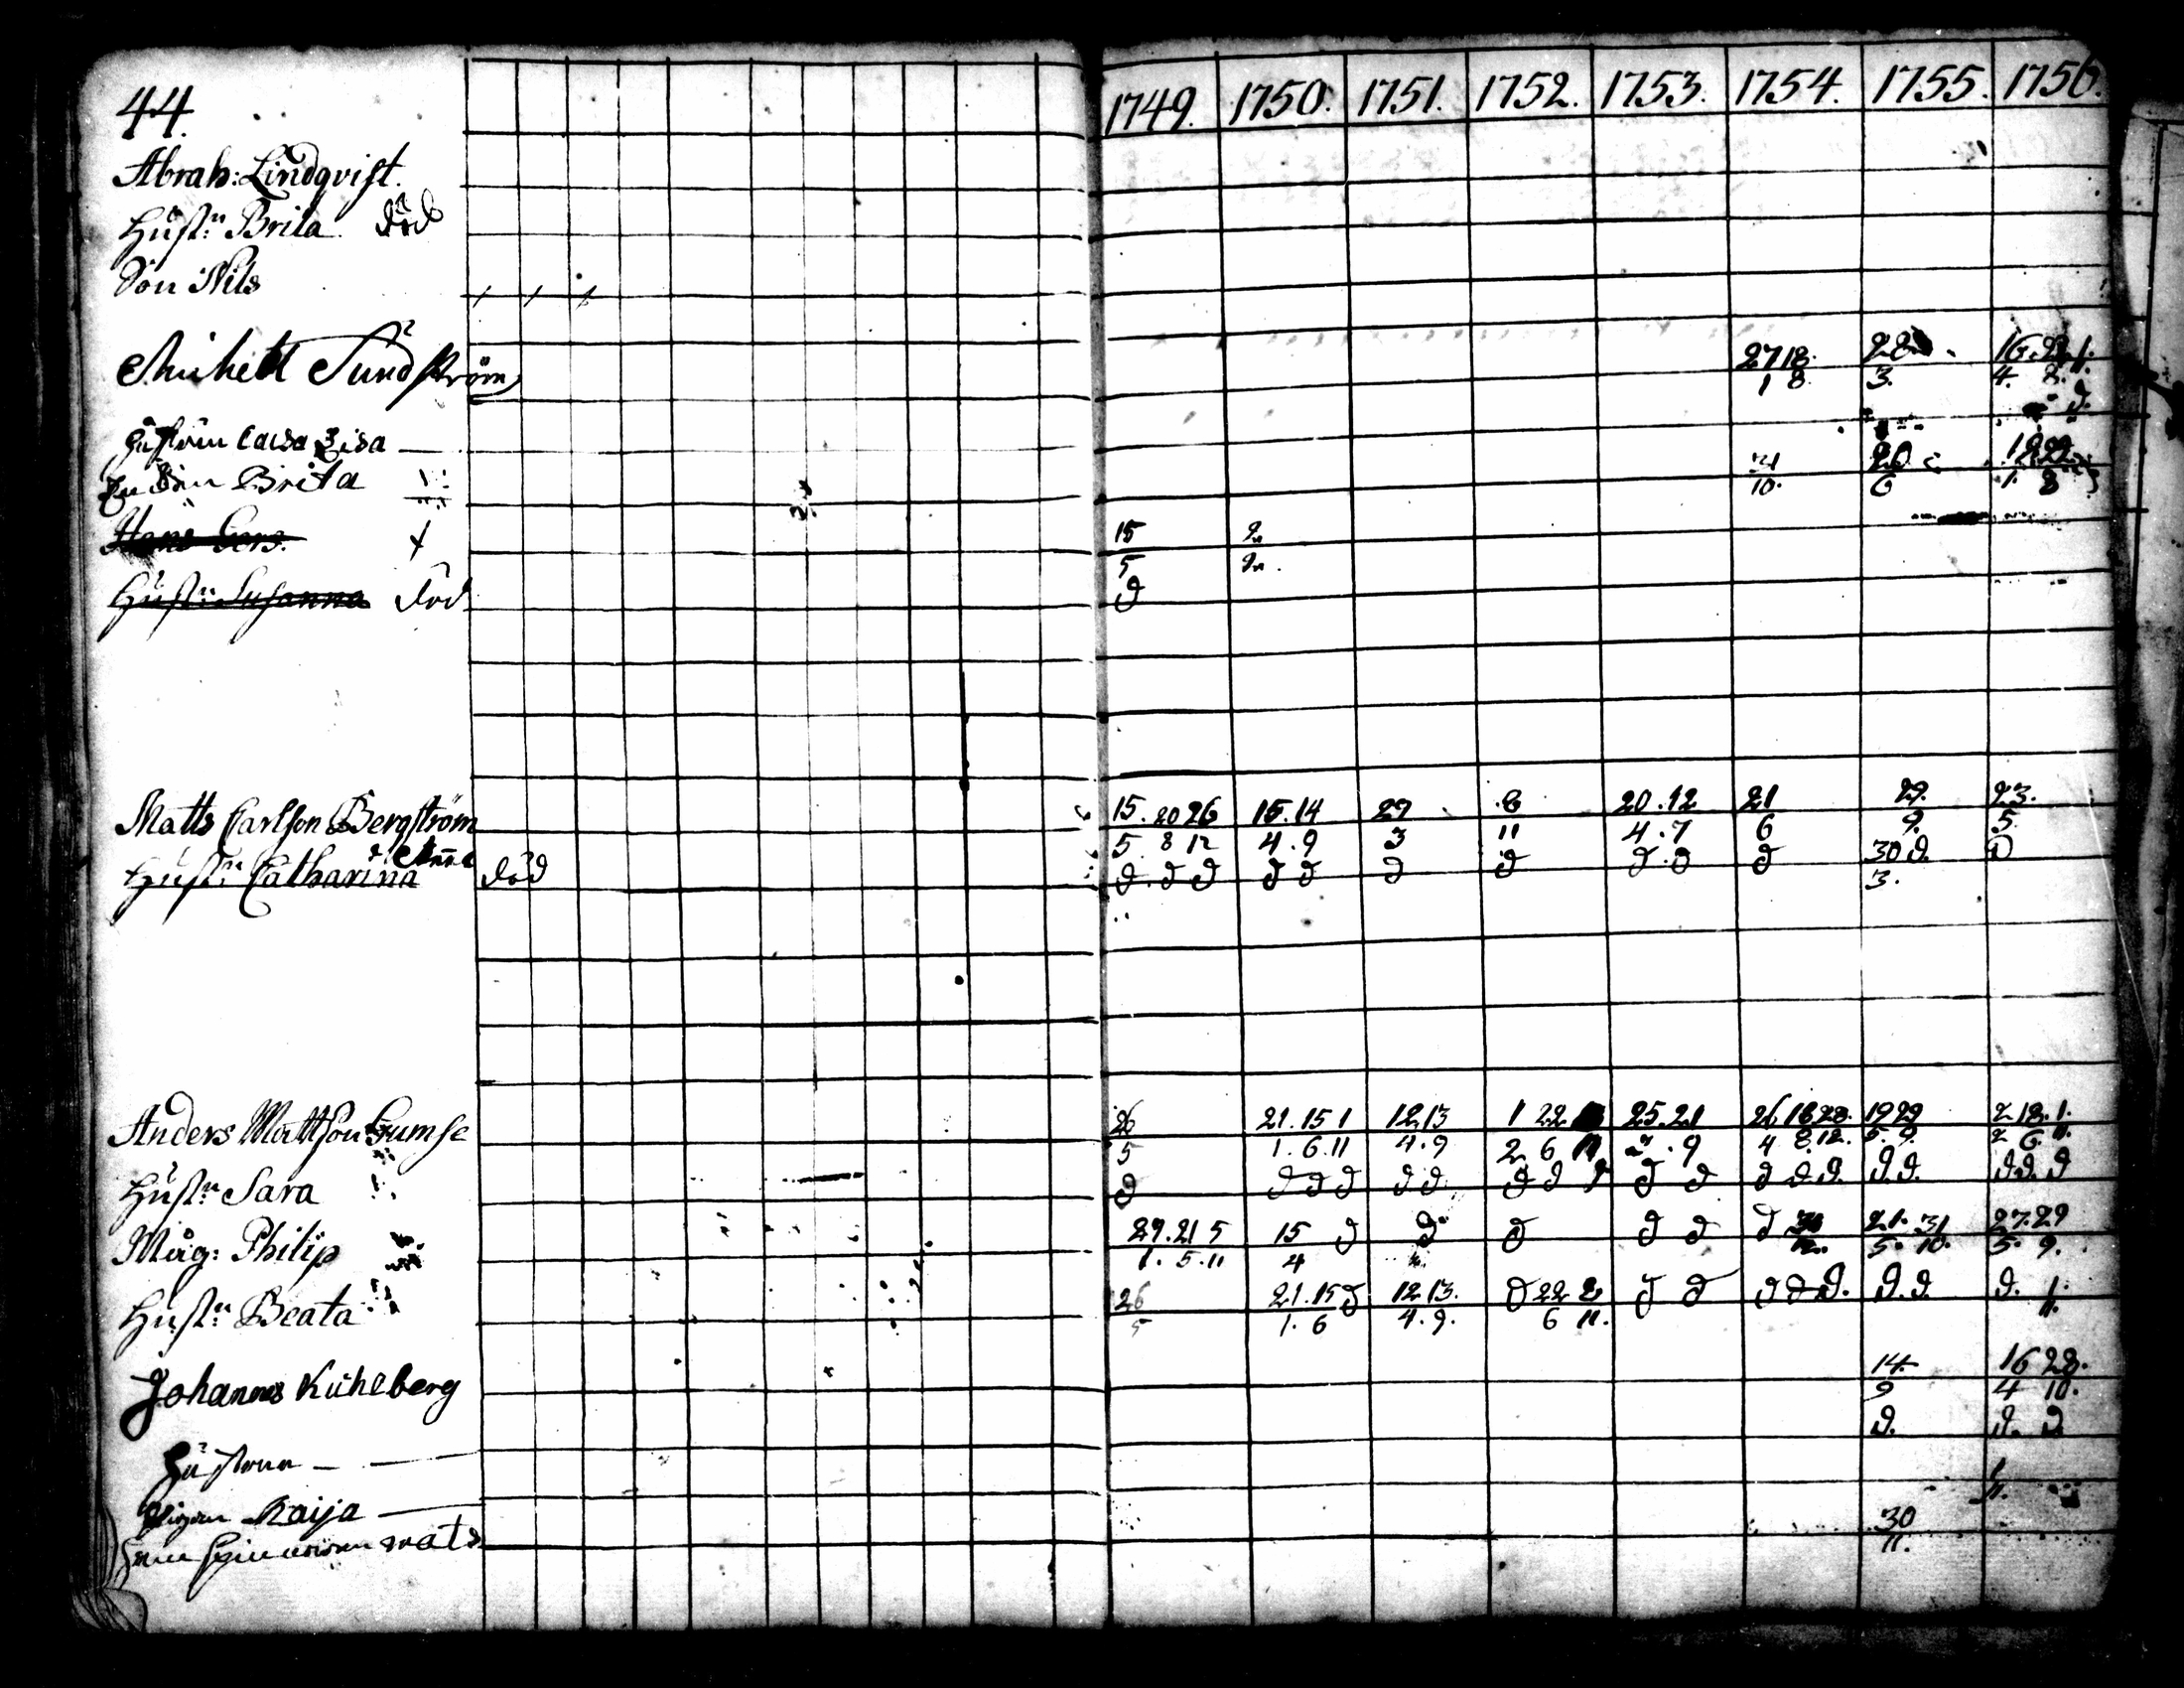 44. 1749. 1750. 1751. 1752. 1753. 1754. 1755. 1756.
Abrah: Lindqvist.
Hust: Brita död
Son Nils
Michell Sundström 27 18. 28 16.
1 8 3. 4. 8.
Hustrun Caisa Lisa
Brita 21 20
10. 6 1. 8
Hans Ers. 15
5
Hust: Susanna död D
Matts Carlson Bergström 15. 20 26 15. 14 29 8 20. 12 21 29. 23.
5 8 12 4. 9 3 11 4. 7 6 9. 5.
Hust: Catharina d Anna död D. D D D D D D D. D D 30 D. D
3.
Anders Mattson Gumse 26 21. 15 1 12 13 1 22 25. 21 26 18 28. 19 29 2 18. 1.
5 1. 6. 11 4. 9 2 6 11 . 9 4 8 12. 5. 9. 2 6. 11.
Hust: Sara D D D D D D D D D D D D D D. D. D. D D. D
Måg: Philip 29. 21 5 15 D D D D D D 21. 31 27. 29
1. 5. 11 4 5. 10. 5. 9.
Hust: Beata 26 21. 15 D 12 13. D 22 D D D D D. D. D. D. 1.
5 1. 6 4. 9. 6 11. 11.
Johannes Kuhlberg 14. 16 28.
9 4 10.
D. D. D
Hustrun
Pigan Kaija
30
11.